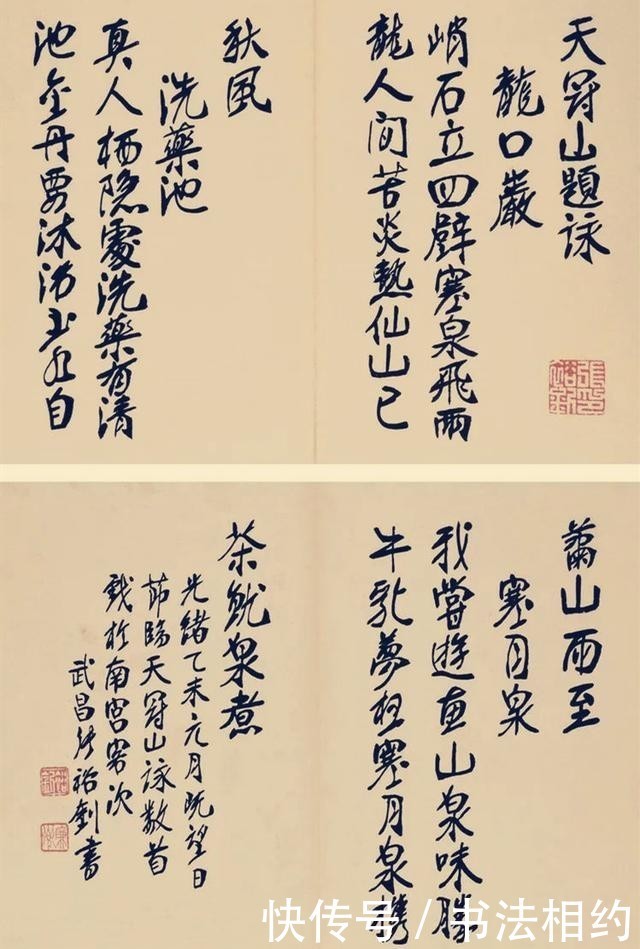 天冠山題詠
龍口巖
峭石立四壁寒泉飛兩
龍人間苦炎熱仙山已
秋風
洗藥池
真人栖隱處洗藥有清
池金丹要沐浴玉水自
山雨至
寒月泉
我嘗遊惠山泉味勝
牛乳夢想寒月泉攜
茶就泉煮
光緒乙未元月既望日
節臨天冠山詠數首
戲於南宮次
武昌張裕釗書
快传号/书法相约